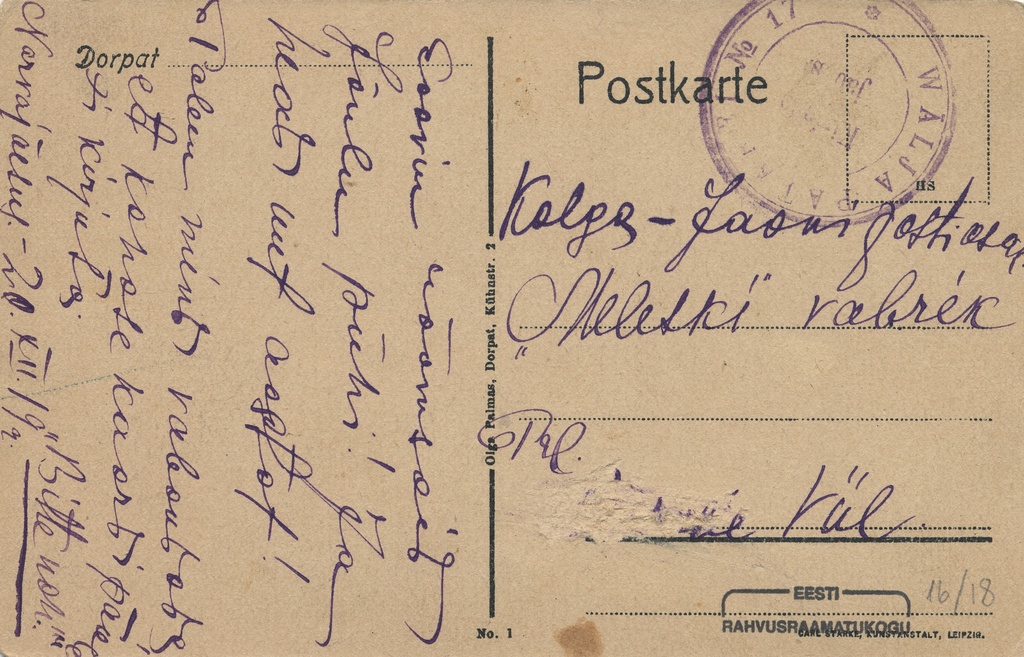 Dorpat
Soovin rõõmsaid
Jõulu pühi! Ja
head uut aastat!
Palun mind vabandada
et kohase kaardi pääl
ei kirjuta.
Narvajõesuu - 20. XII. 19
Postkarte
No 17
WÄLJA PATAREI
HS
Kolga - Jaani postiosak.
"Meleski" vabrik
Prl.
Väl.
Olga Palmas, Dorpat, Kühnstr. 2
No. 1
16/18
EESTI
RAHVUSRAAMATUKOGU
CARL STARKE, KUNSTANSTALT, LEIPZIG.